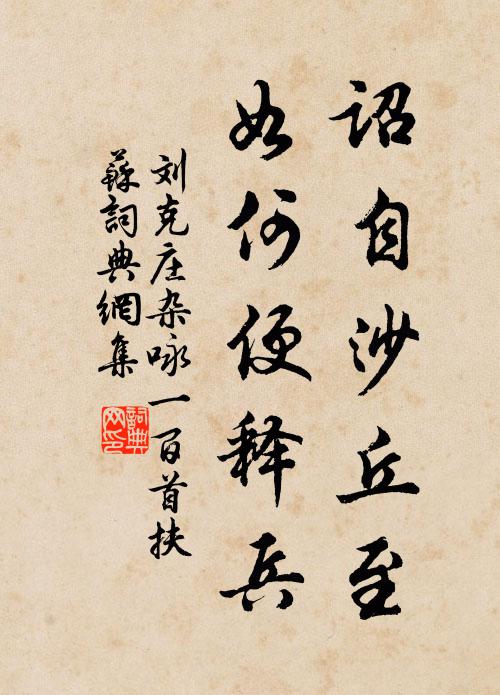 诏自沙丘至
如何便释兵
刘克庄杂咏一百首扶
蘇詞典網集
詞典
网印